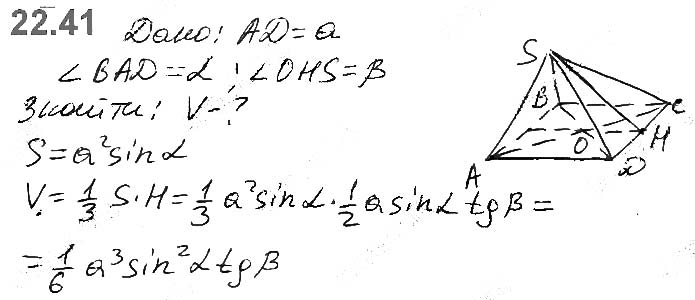 22.41 Дано: AD = a
∠BAD = α; ∠OHS = β
Знайти: V - ?
S = a² sin α
V = 1/3 S·H = 1/3 a² sin α · 1/2 a sin α tg β =
= 1/6 a³ sin² α tg β
S
B
C
H
O
A
D